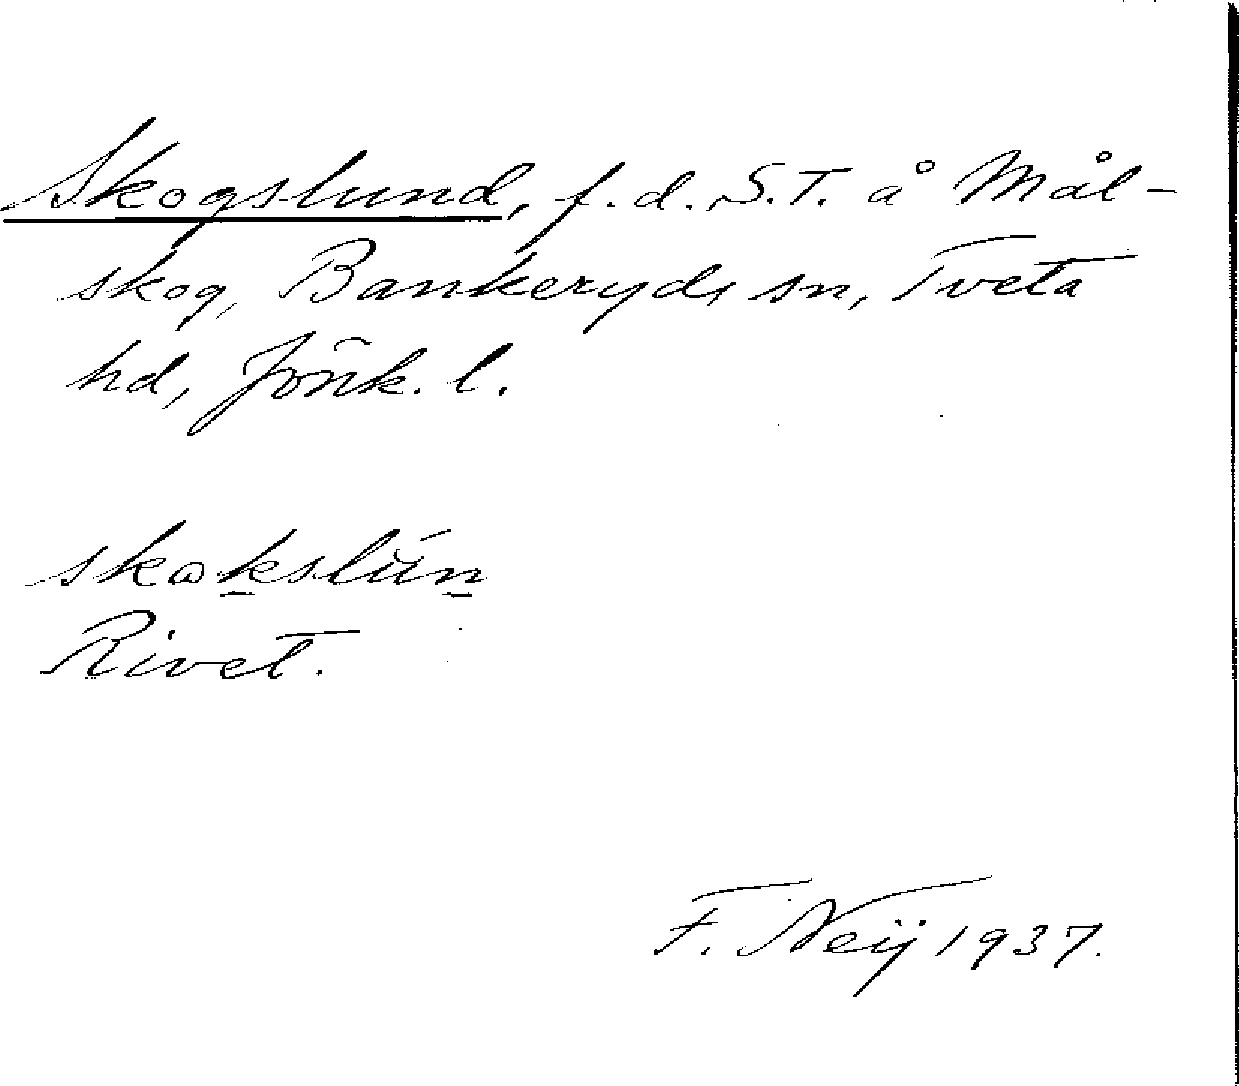 Skogslund, f. d. S.T. å Mål-
skog, Bankeryds sn, Tveta
hd, Jönk. l.
skωk̲slún̲
Rivet.
F. Neij 1937.